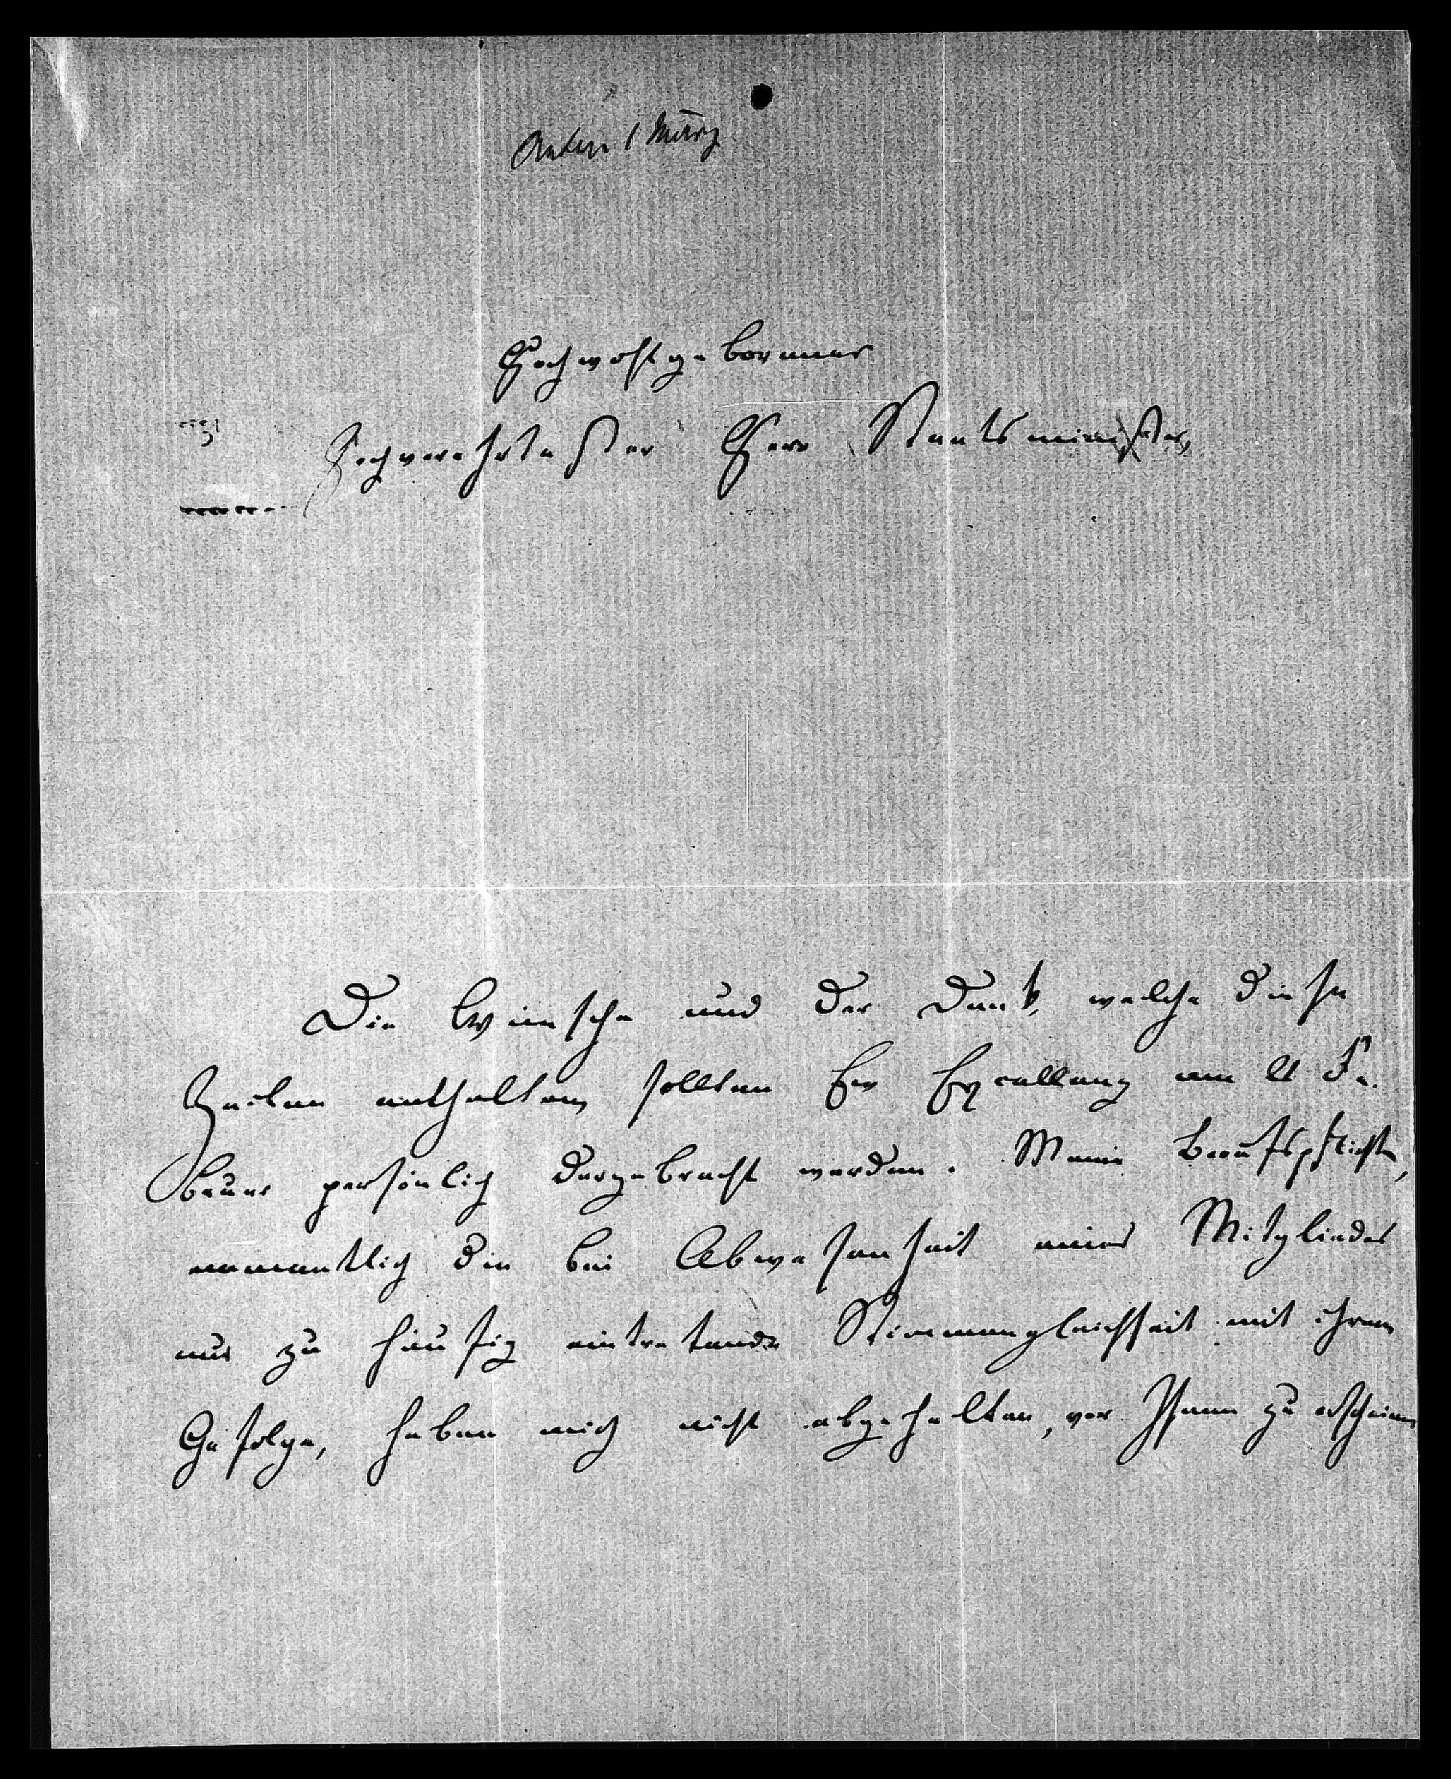 1 März
Hochwohlgeborener
Hochverehrtester Herr Staatsminister,
Die Wünsche und der Dank, welche diese
Zeilen enthalten, sollten Ew Excellenz am 21 Fe¬
bruar persönlich dargebracht werden. Meine Berufspflichten,
namentlich die bei Abwesenheit eines Mitgliedes
nur zu häufig eintretende Stimmengleichheit mit ihrem
Gefolge, haben mich nicht abgehalten, vor Ihnen zu erscheinen